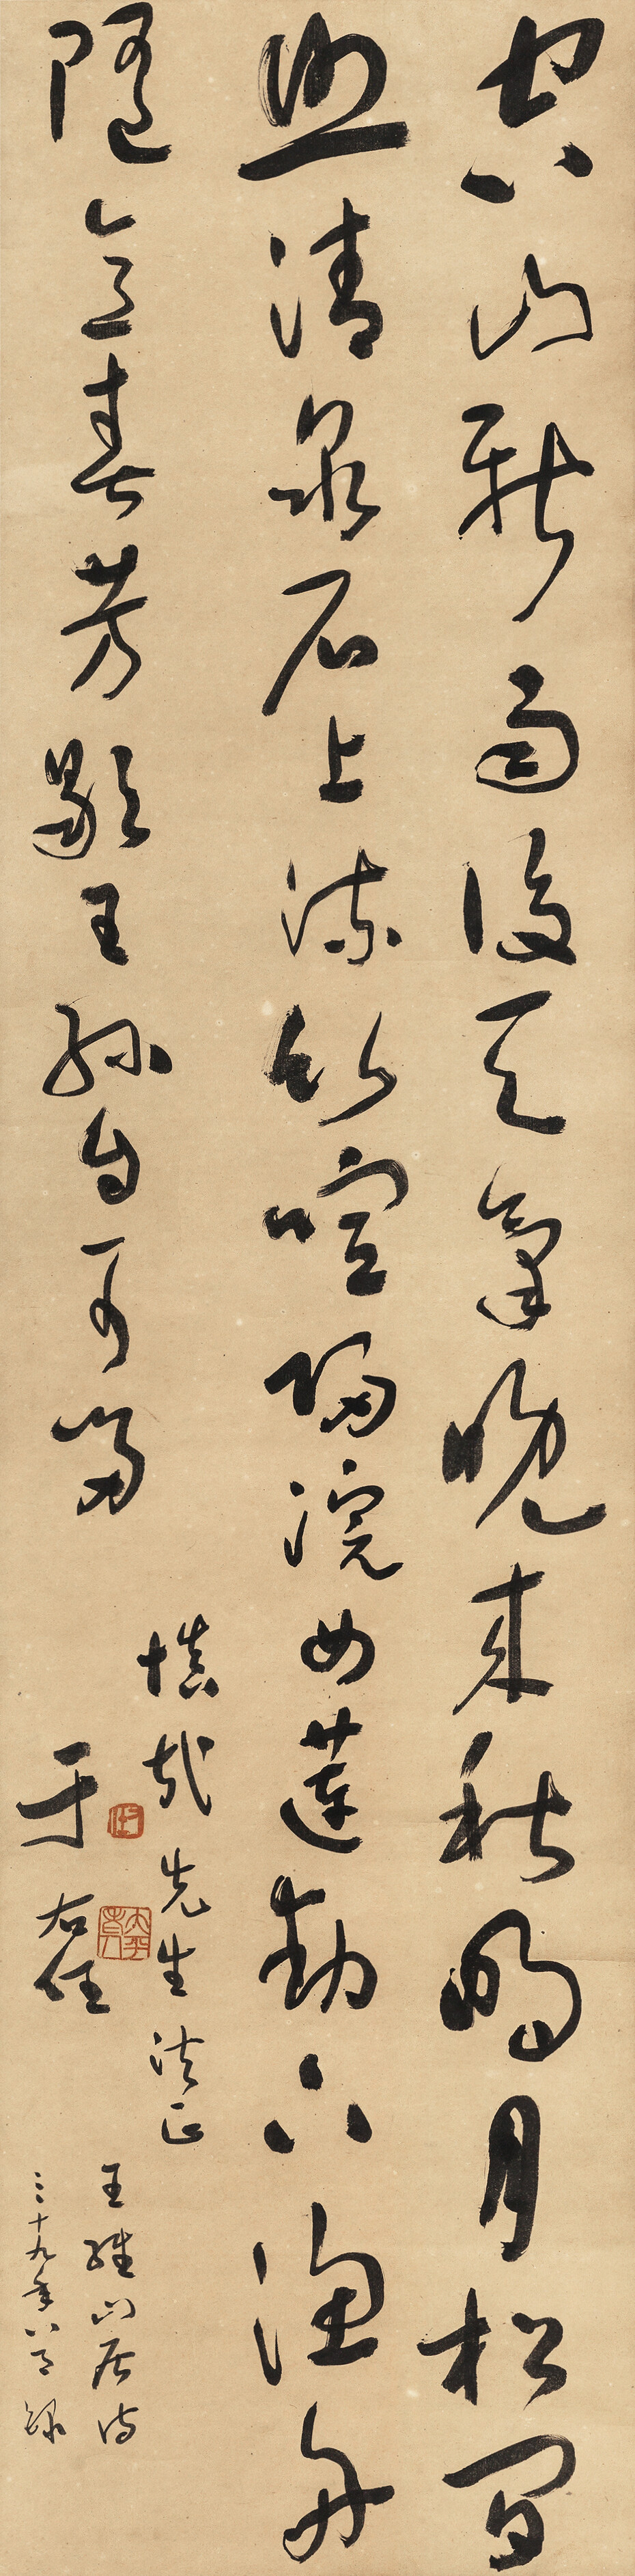 空山新雨後天氣晚來秋明月松間
照清泉石上流竹喧歸浣女蓮動下漁舟
隨意春芳歇王孫自可留
慎哉先生法正
于右任
王維山居詩
三十九年八月錄